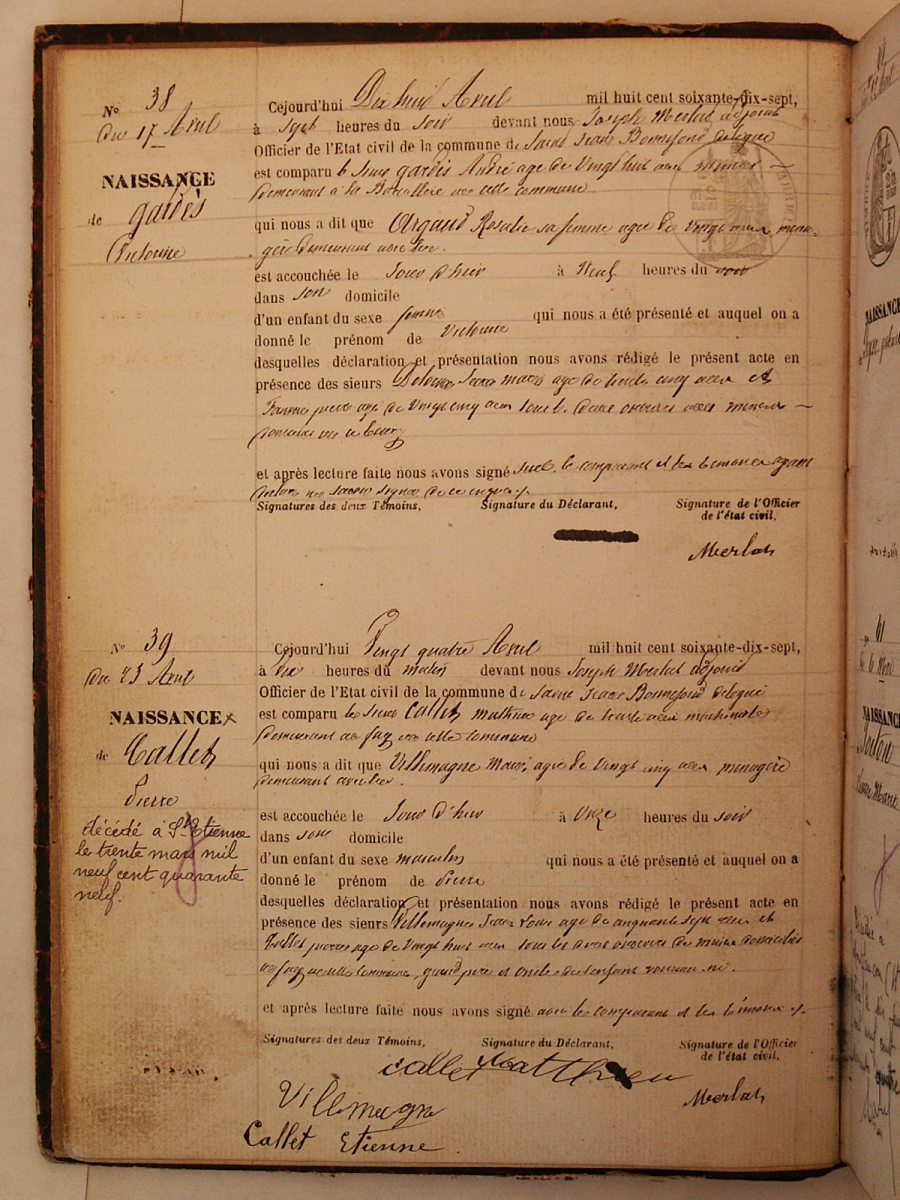 N° 38
du 17 Avril
NAISSANCE
de gardès
Cejourd'hui Dix huit Avril mil huit cent soixante-dix-sept,
à Sept heures du Soir devant nous Joseph Merlat adjoint
Officier de l'Etat civil de la commune de Saint Jean Bonnefond délégué
est comparu le Sieur gardès André age de Vingt huit ans mineur
demeurant à la en cette commune
qui nous a dit que Argaud Rosalie sa femme agée de Vingt ans ména-
gère demeurant avec lui
est accouchée le Jour d'hier à Neuf heures du soir
dans son domicile
d'un enfant du sexe qui nous a été présenté et auquel on a
donné le prénom de
desquelles déclaration et présentation nous avons rédigé le présent acte en
présence des sieurs age de trente cinq ans et
agé de Vingt cinq ans tous les deux mineurs
et après lecture faite nous avons signé Seul le comparant et les témoins ayant
déclaré ne savoir signer de ce enquis
Signatures des deux Témoins, Signature du Déclarant, Signature de l'Officier
de l'état civil,
Merlat
N° 39
du 23 Avril
NAISSANCE
de Callet
Pierre
décédé à St Etienne
le trente mars mil
neuf cent quarante
neuf.
Cejourd'hui Vingt quatre Avril mil huit cent soixante-dix-sept,
à dix heures du matin devant nous Joseph Merlat adjoint
Officier de l'Etat civil de la commune de Saint Jean Bonnefond délégué
est comparu le Sieur Callet Mathieu age de trente ans machiniste
demeurant au fay en cette commune
qui nous a dit que Villemagne Marie agée de Vingt cinq ans ménagère
demeurant avec lui
est accouchée le Jour d'hier à Onze heures du soir
dans son domicile
d'un enfant du sexe masculin qui nous a été présenté et auquel on a
donné le prénom de Pierre
desquelles déclaration et présentation nous avons rédigé le présent acte en
présence des sieurs Villemagne Jean Louis age de cinquante sept ans et
Callet age de Vingt huit ans tous les deux ouvriers de mines domiciliés
au fay en cette commune, grand père et oncle de l'enfant nouveau né.
et après lecture faite nous avons signé avec le comparant et les témoins
Signatures des deux Témoins, Signature du Déclarant, Signature de l'Officier
de l'état civil,
Callet Matthieu
Merlat
Villemagne
Callet Etienne